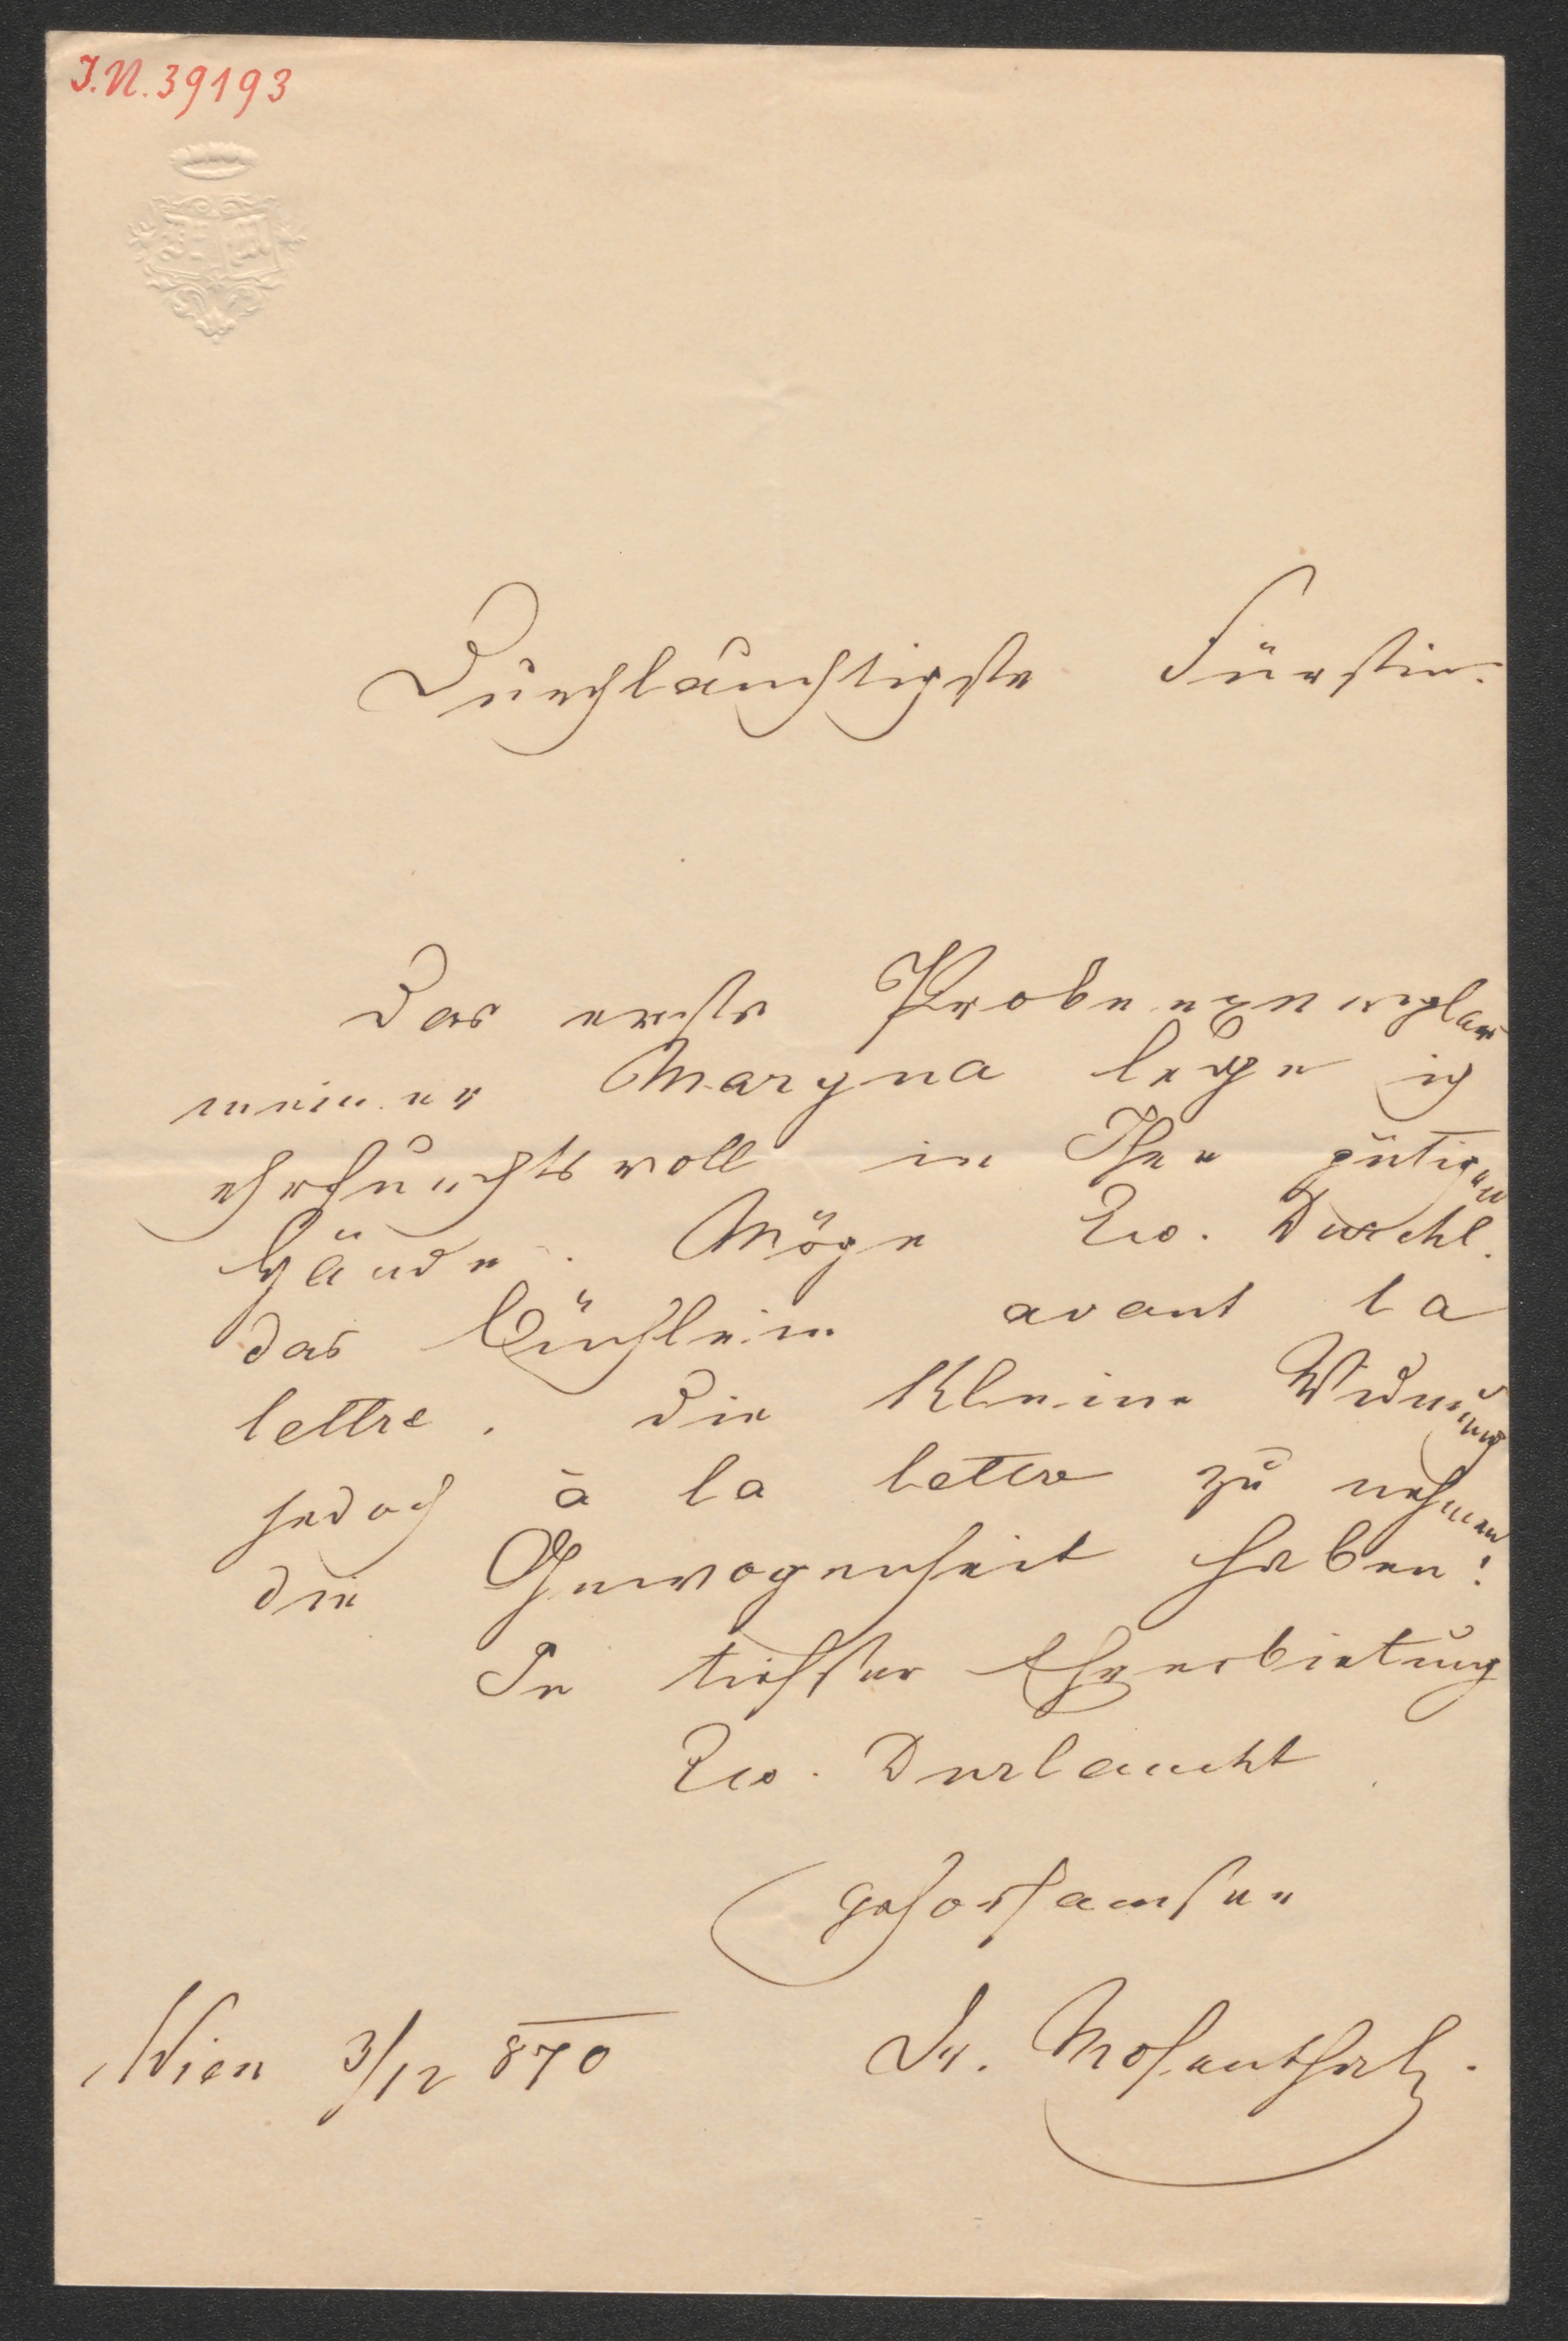 I.N. 39193
Durchlauchtigste Fürstin.
Das erste Probeexemplar
meiner Maryna lege ich
ehrfurchtsvoll in Ihre gütigen
Hände. Möge Ew. Durchl.
das Büchlein avant la
lettre, die kleine Widmung
jedoch à la lettre zu nehmen
die Gewogenheit haben!
In tiefster Ehrerbietung
Ew. Durlaucht
gehorsamster
Wien 3/12 870 Dr. Mosenthal.